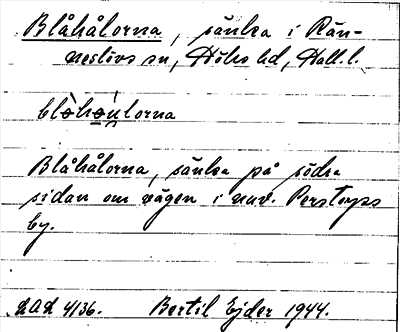 Blåhålorna, sänka i Rän-
neslövs sn, Höks hd, Hall. l.
blòho̲ùlorna
Blåhålorna, sänka på södra
sidan om vägen i nuv. Perstorps
by.
LAL 4136. Bertil Ejder 1944.